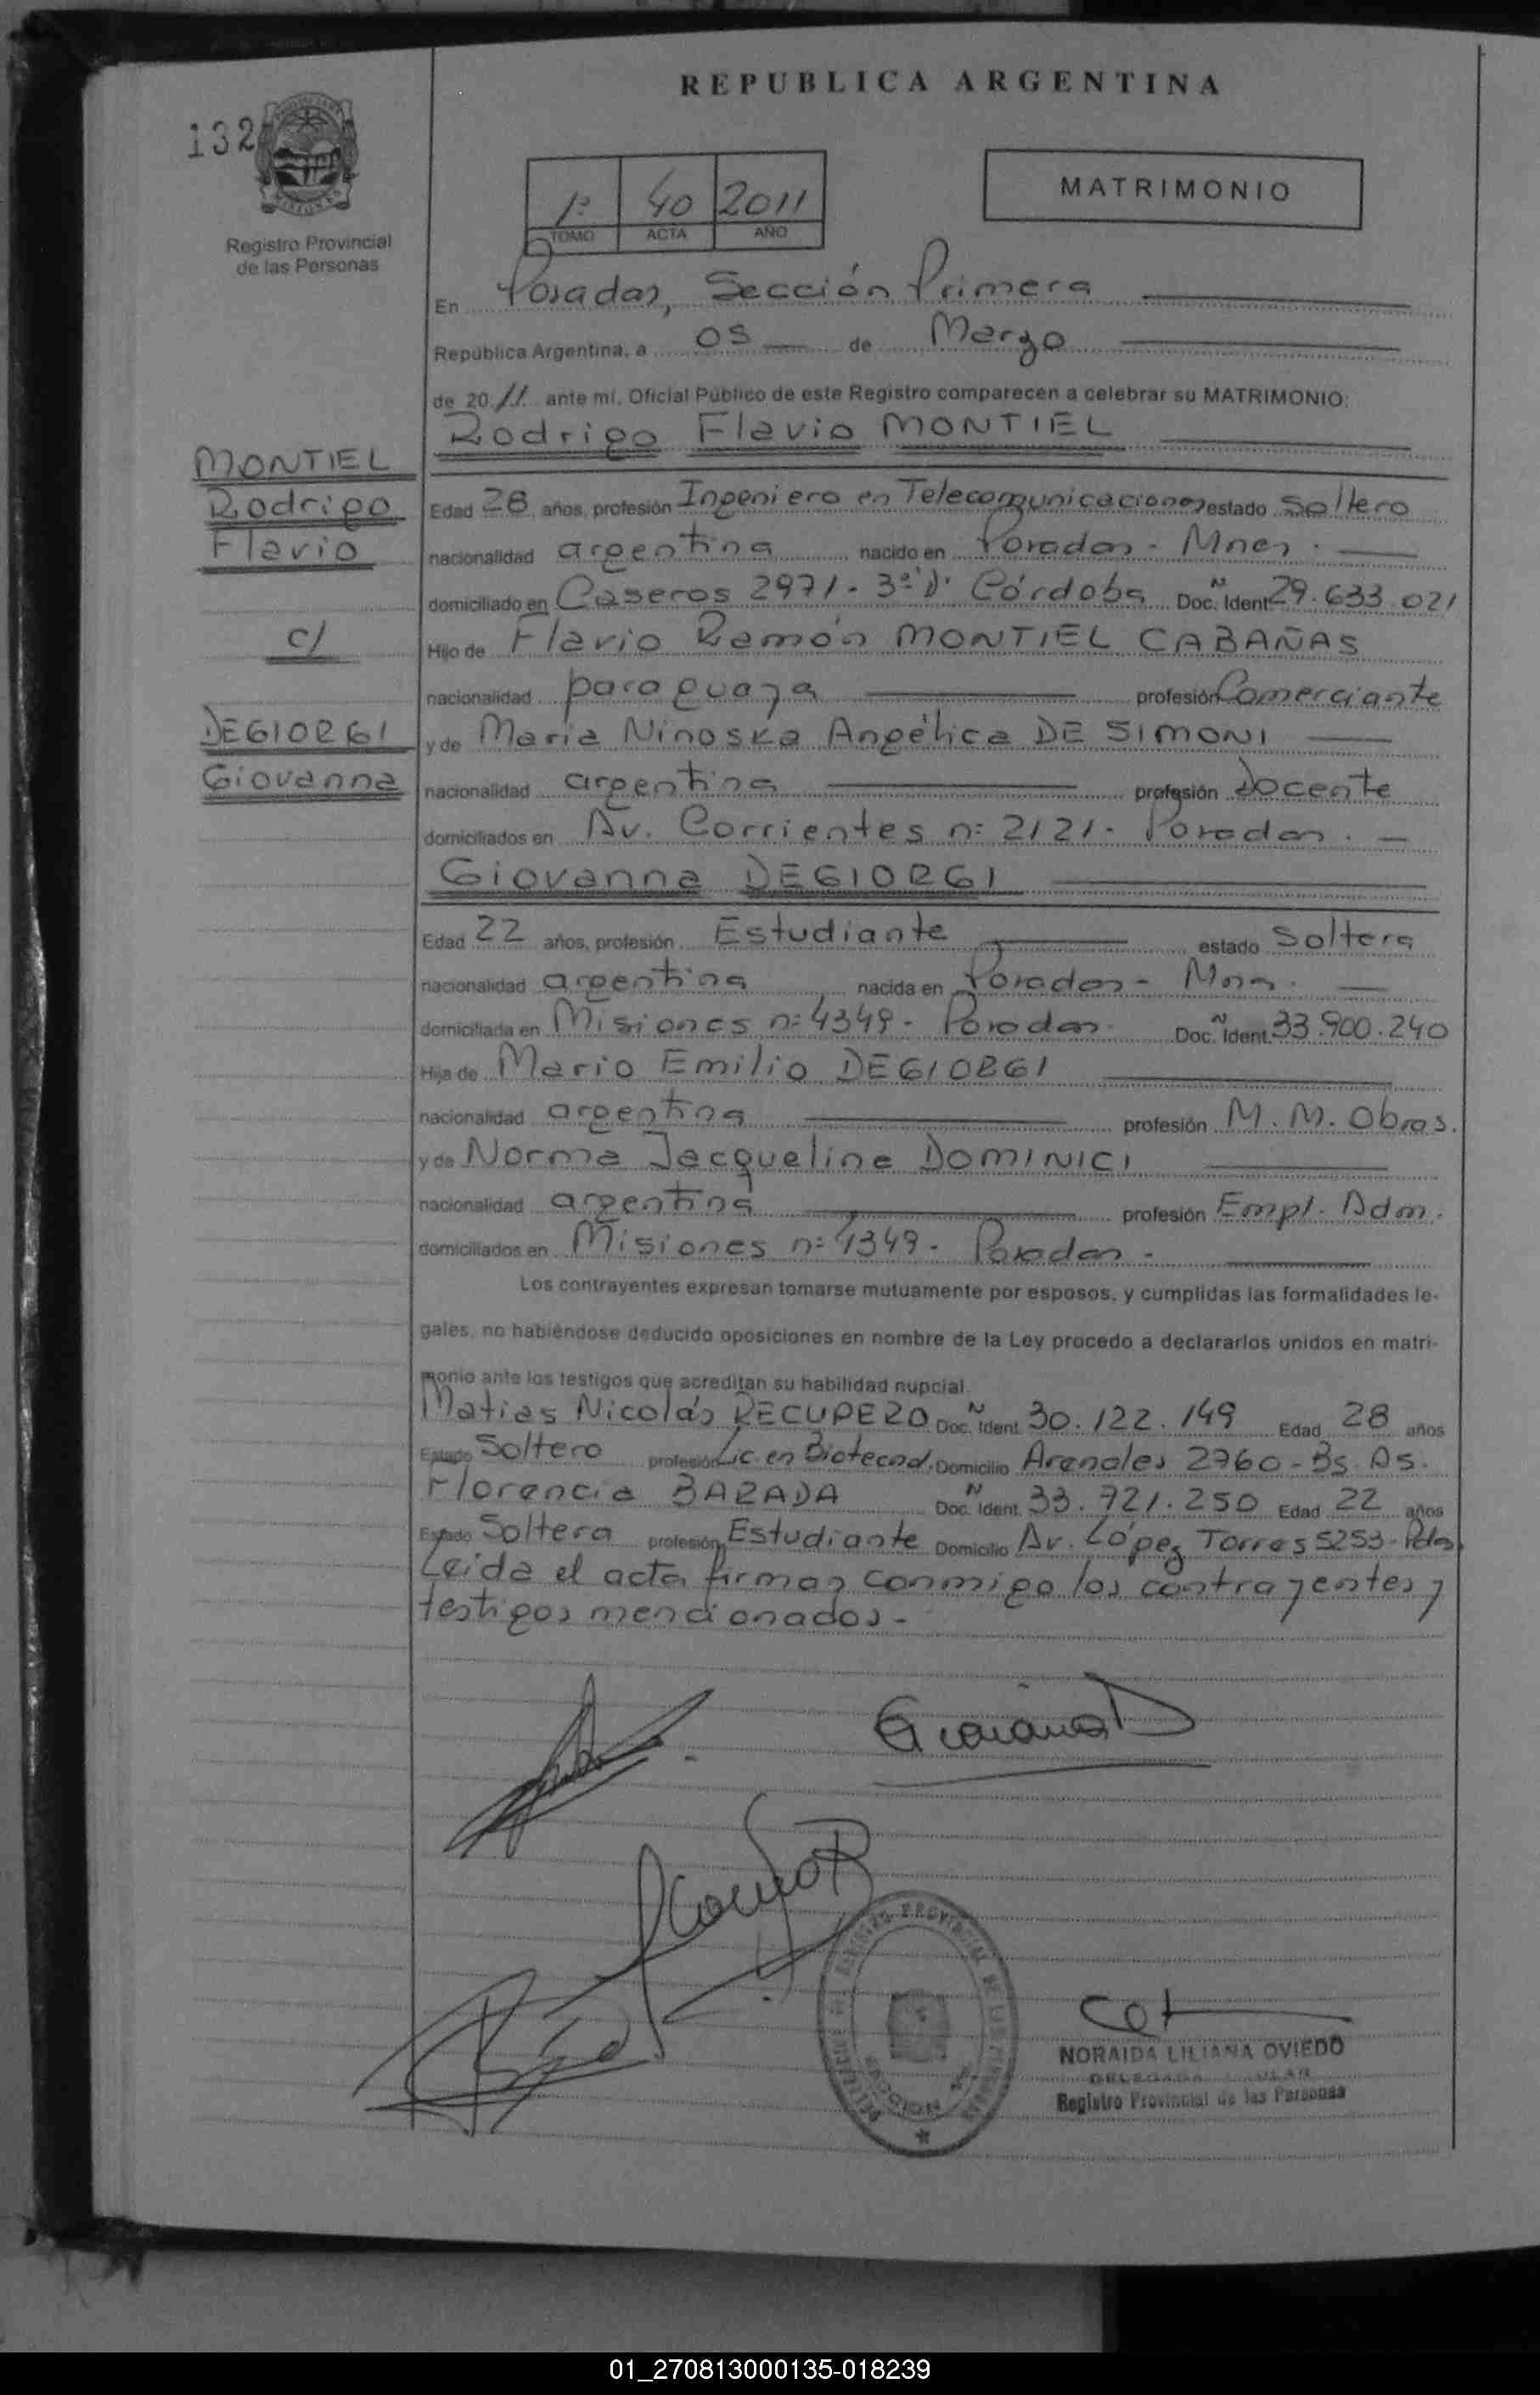 REPUBLICA ARGENTINA
132
Registro Provincial
de las Personas
1º 40 2011
TOMO ACTA AÑO
MATRIMONIO
En Posadas, Sección Primera
República Argentina, a 05 de Marzo
de 2011 ante mí, Oficial Público de este Registro comparecen a celebrar su MATRIMONIO:
Rodrigo Flavio MONTIEL
MONTIEL
Rodrigo
Flavio
c/
DEGIORGI
Giovanna
Edad 28 años, profesión Ingeniero en Telecomunicaciones estado Soltero
nacionalidad argentina nacido en Posadas - Mnes.
domiciliado en Caseros 2971 - 3º D. Córdoba Doc. N Ident 29.633.021
Hijo de Flavio Ramón MONTIEL CABAÑAS
nacionalidad paraguaya profesión Comerciante
y de María Ninoska Angélica DE SIMONI
nacionalidad argentina profesión docente
domiciliados en Av. Corrientes nº 2121 - Posadas.
Giovanna DEGIORGI
Edad 22 años, profesión Estudiante estado Soltera
nacionalidad argentina nacida en Posadas - Mnes.
domiciliada en Misiones nº 4349 - Posadas. Doc. N Ident. 33.900.240
Hija de Mario Emilio DEGIORGI
nacionalidad argentina profesión M. M. Obras.
y de Norma Jacqueline DOMINICI
nacionalidad argentina profesión Empl. Adm.
domiciliados en Misiones nº 4349 - Posadas -
Los contrayentes expresan tomarse mutuamente por esposos, y cumplidas las formalidades le-
gales, no habiéndose deducido oposiciones en nombre de la Ley procedo a declararlos unidos en matri-
monio ante los testigos que acreditan su habilidad nupcial.
Matías Nicolás RECUPERO Doc. N Ident. 30.122.149 Edad 28 años
Estado Soltero profesión Lic. en Biotecnol. Domicilio Arenales 2760 - Bs. As.
Florencia BARADA Doc. N Ident. 33.721.250 Edad 22 años
Estado Soltera profesión Estudiante Domicilio Av. López Torres 5253 - Pdas.
Leída el acta firman conmigo los contrayentes y
testigos mencionados -
Giovanna D
NORAIDA LILIANA OVIEDO
DELEGADA TITULAR
Registro Provincial de las Personas
REGISTRO PROVINCIAL DE LAS PERSONAS
SECCION
01_270813000135-018239